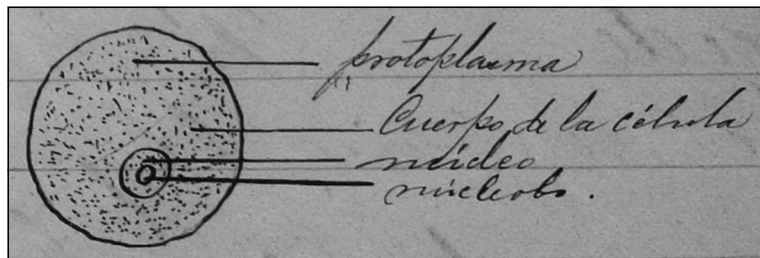 protoplasma
Cuerpo de la célula
núcleo
núcleolo.